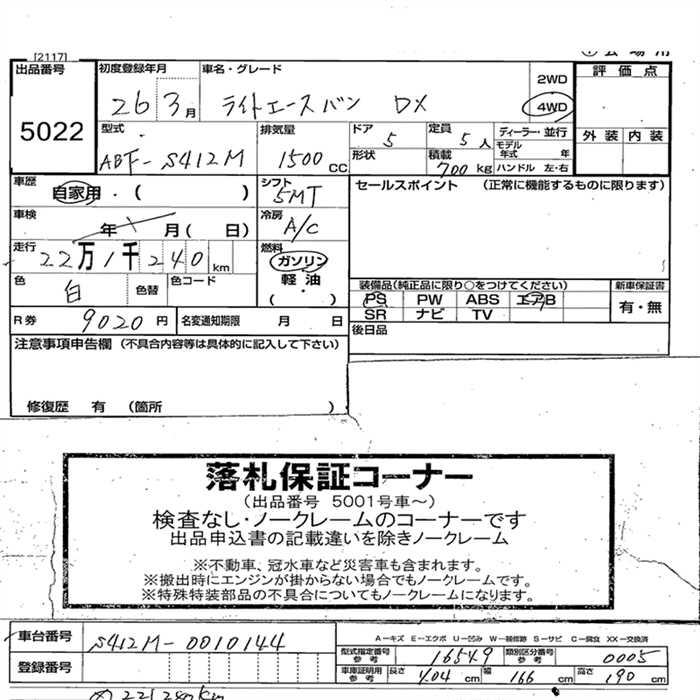 [2117]
出品番号
5022
初度登録年月
26 3月
車名・グレード
ライトエースバン DX
2WD
4WD
評価点
外装 内装
型式
ABF-S412M
排気量
1500 CC
ドア
5
定員
5人
ディーラー・並行
モデル年式 年
形状
積載
700 kg
ハンドル 左・右
車歴
自家用・( )
シフト
5MT
セールスポイント (正常に機能するものに限ります)
車検
年 月( 日)
冷房
A/C
走行
22万1千240km
燃料
ガソリン
軽油
・
( )
色
白
色替
色コード
装備品(純正品に限り○をつけてください)
新車保証書
PS PW ABS エアB
SR ナビ TV
有・無
R券
9020円
名変通知期限 月 日
後日品
注意事項申告欄 (不具合内容等は具体的に記入して下さい)
修復歴 有 (箇所 )
落札保証コーナー
(出品番号 5001号車~)
検査なし・ノークレームのコーナーです
出品申込書の記載違いを除きノークレーム
※不動車、冠水車など災害車も含まれます。
※搬出時にエンジンが掛からない場合でもノークレームです。
※特殊特装部品の不具合についてもノークレームになります。
車台番号
S412M-0010144
A-キズ E-エクボ U-凹み W-補修跡 S-サビ C-腐食 XX-交換済
登録番号
型式指定番号
参考
16549
類別区分番号
参考
0005
車庫証明用
参考
長さ 404 cm
幅 166 cm
高さ 190 cm